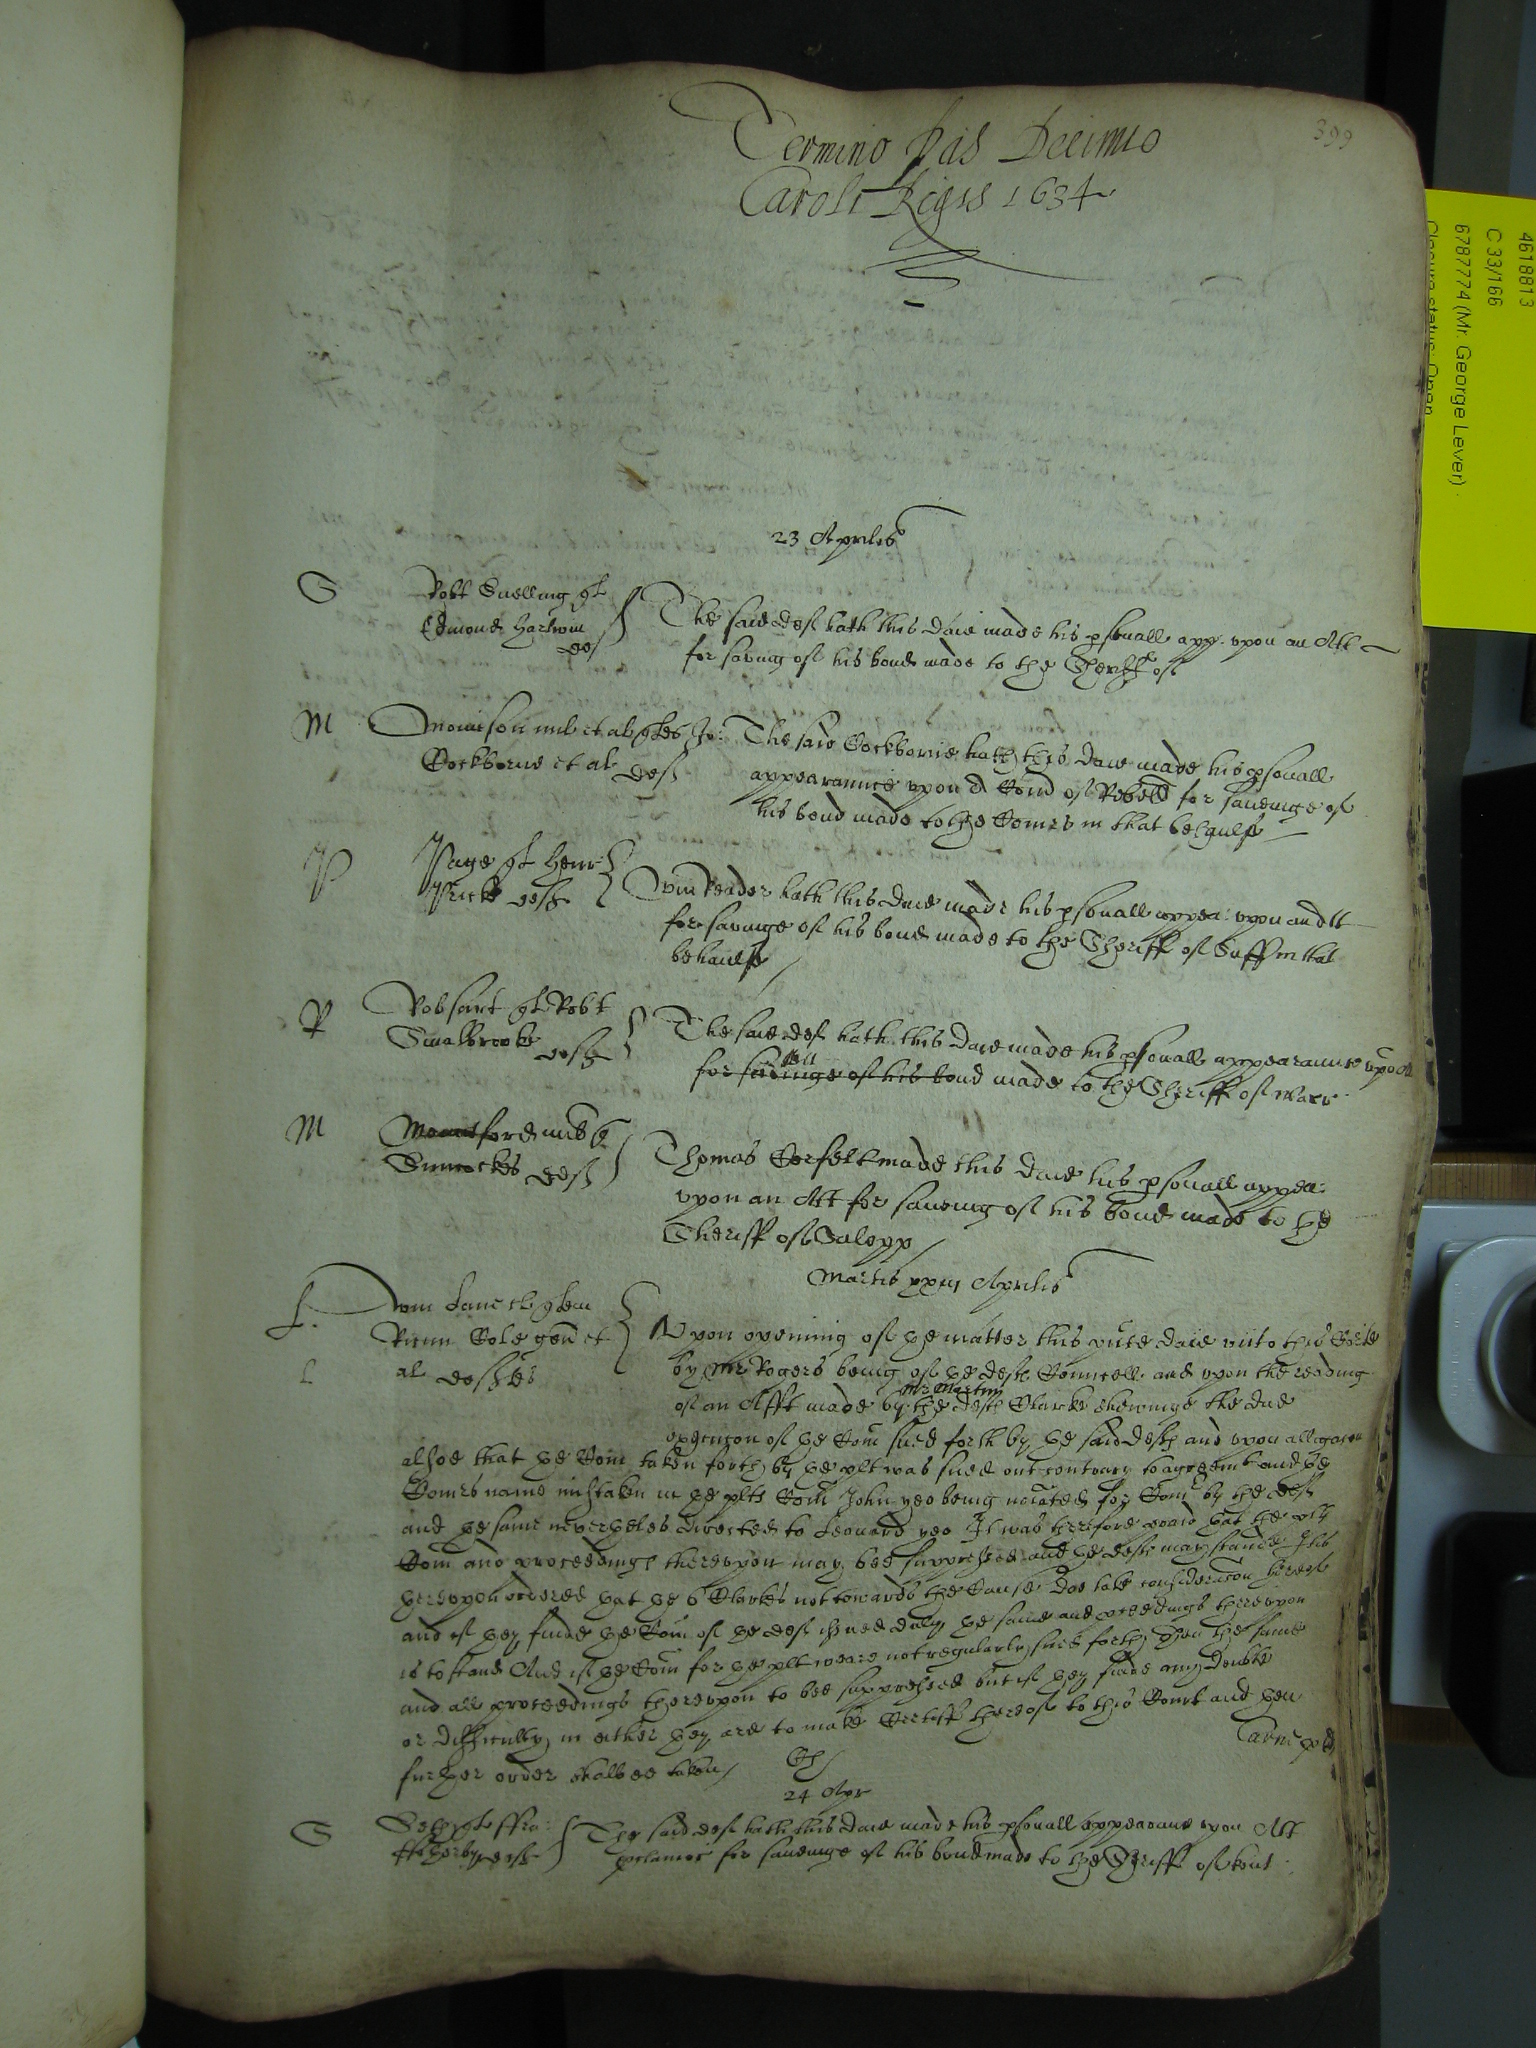 399
Termino Pas Decimo
Caroli Regis 1634
4618813
C 33/166
6787774 (Mr. George Lever)
Closure status: Open
23 Aprilis
S
Robt Snelling plt
Edmond
def
The said def hath this daie made his psonall app. upon an Att
for saving of his bond made to the Sheriff of
M
mil et al pltes
Cockborne et al defts
The said Cockborne hath this daie made his psonall
appearannce upon a Com of Rebell for saueinge of
his bond made to the Comrs in that behaulfe
P
Page plt Henr
Pricke deft
hath this daie made his psonall appea: upon an Att
for savinge of his bond made to the Sheriff of Suff in that
behaulfe
R
Robsart plt Robt
Smalbrooke deft
The said def hath this daie made his psonall appearannce upon
for savinge of his bond made to the Sheriff of Warr
M
ford
deft
Thomas made this daie his psonall appea:
upon an Att for saueing of his bond made to the
Sheriff of Salopp
Martis Aprilis
L.
Wm Lane plt
Cole gen et
al deftes
L
Upon opening of the matter this pnte daie unto this Corte
by Mr Rogers being of the deftes Councell and upon the reading
of an Afft made by the deftes Clarke shewinge the due
Mr Martin
execucon of the Com sued forth by the said deftes and upon allegacon
alsoe that the Com taken forth by the plt was sued out contrary to agreemt and the
Comrs name mistaken in the plts Com John yeo being noiated for Comr by the deft
and the same neverheles directed to Leonard yeo It was therefore praid that the plts
Com and proceedings thereupon may bee suppressed and the deftes may stand It is
hereupon ordered that the 6 Clarkes not towards the Cause doe take consideracon hereof
and if they finde the Com of the def issued duly the same and pceedings thereupon
is to stand And if the Com for the plt weare not regularly sued forth then the same
and all proceedings thereupon to bee suppressed but if they finde any doubt
or difficulty in either they are to make Certiff thereof to this Court and then
further order shalbee taken
24 Apr
S
plt ffra:
deft
The said def hath this daie made his psonall appearanc upon Att
for saueinge of his bond made to the Sheriff of Kent